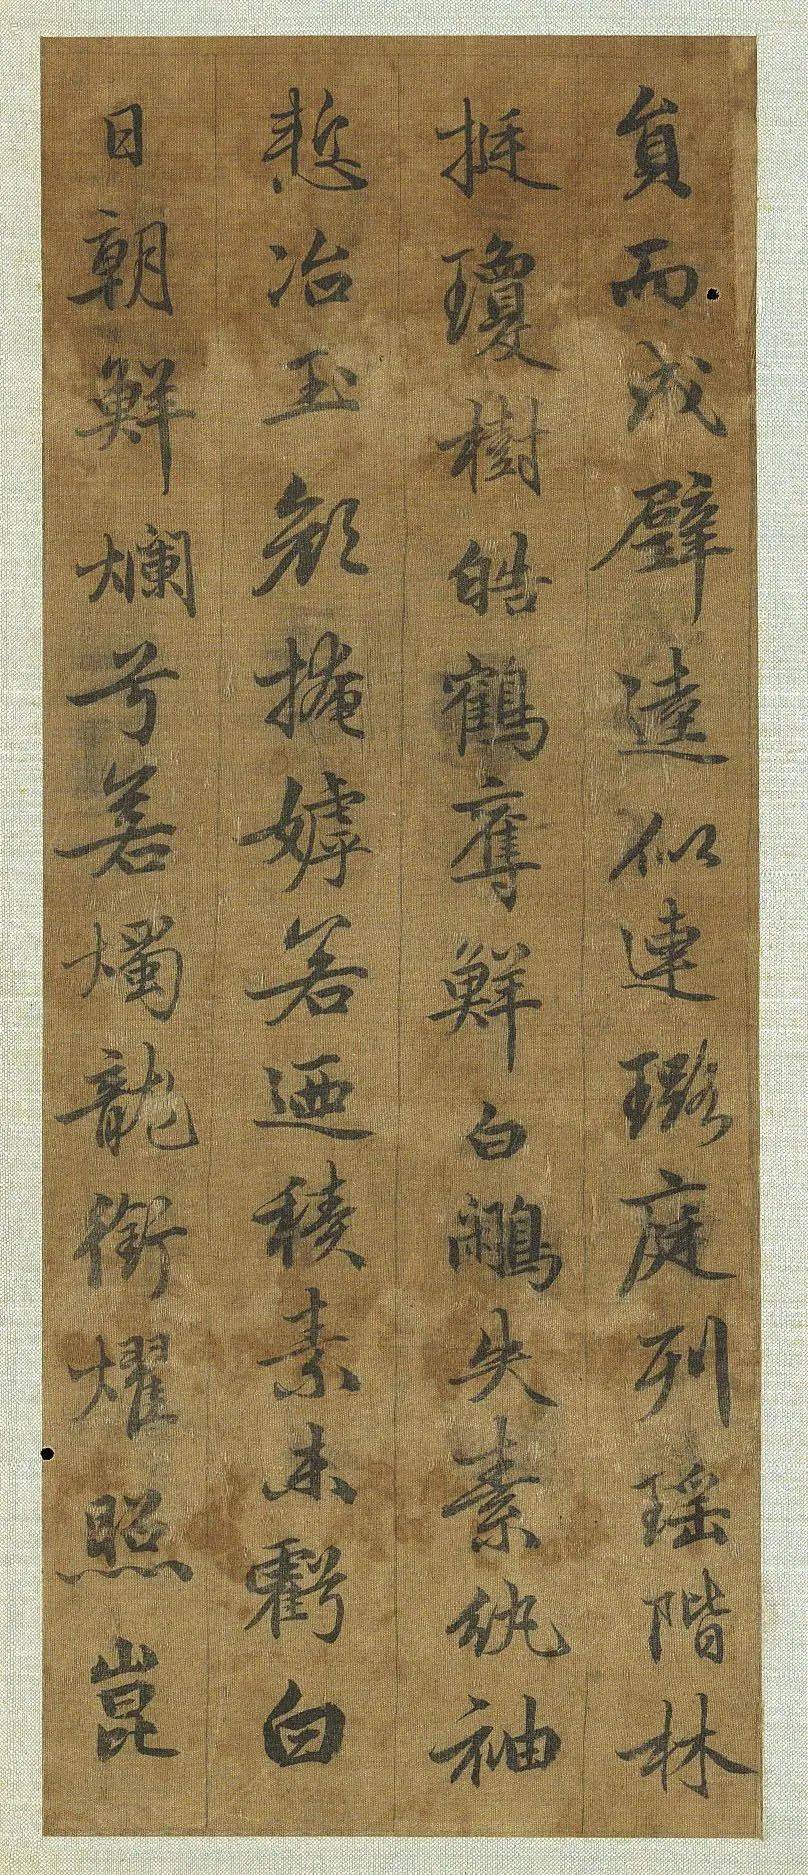 員而成璧逵似連璐庭列瑤階林
挺瓊樹皓鶴奪鮮白鷳失素紈袖
慙冶玉顏掩嫭若迺積素未虧白
日朝鮮爛兮若燭龍銜燿照崑